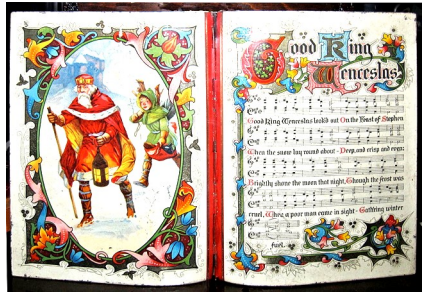 Good King
Wenceslas
Good King Wenceslas look'd out On the Feast of Stephen
When the snow lay round about - Deep and crisp and even;
Brightly shone the moon that night, Though the frost was
cruel, When a poor man came in sight - Gath'ring winter
fuel.